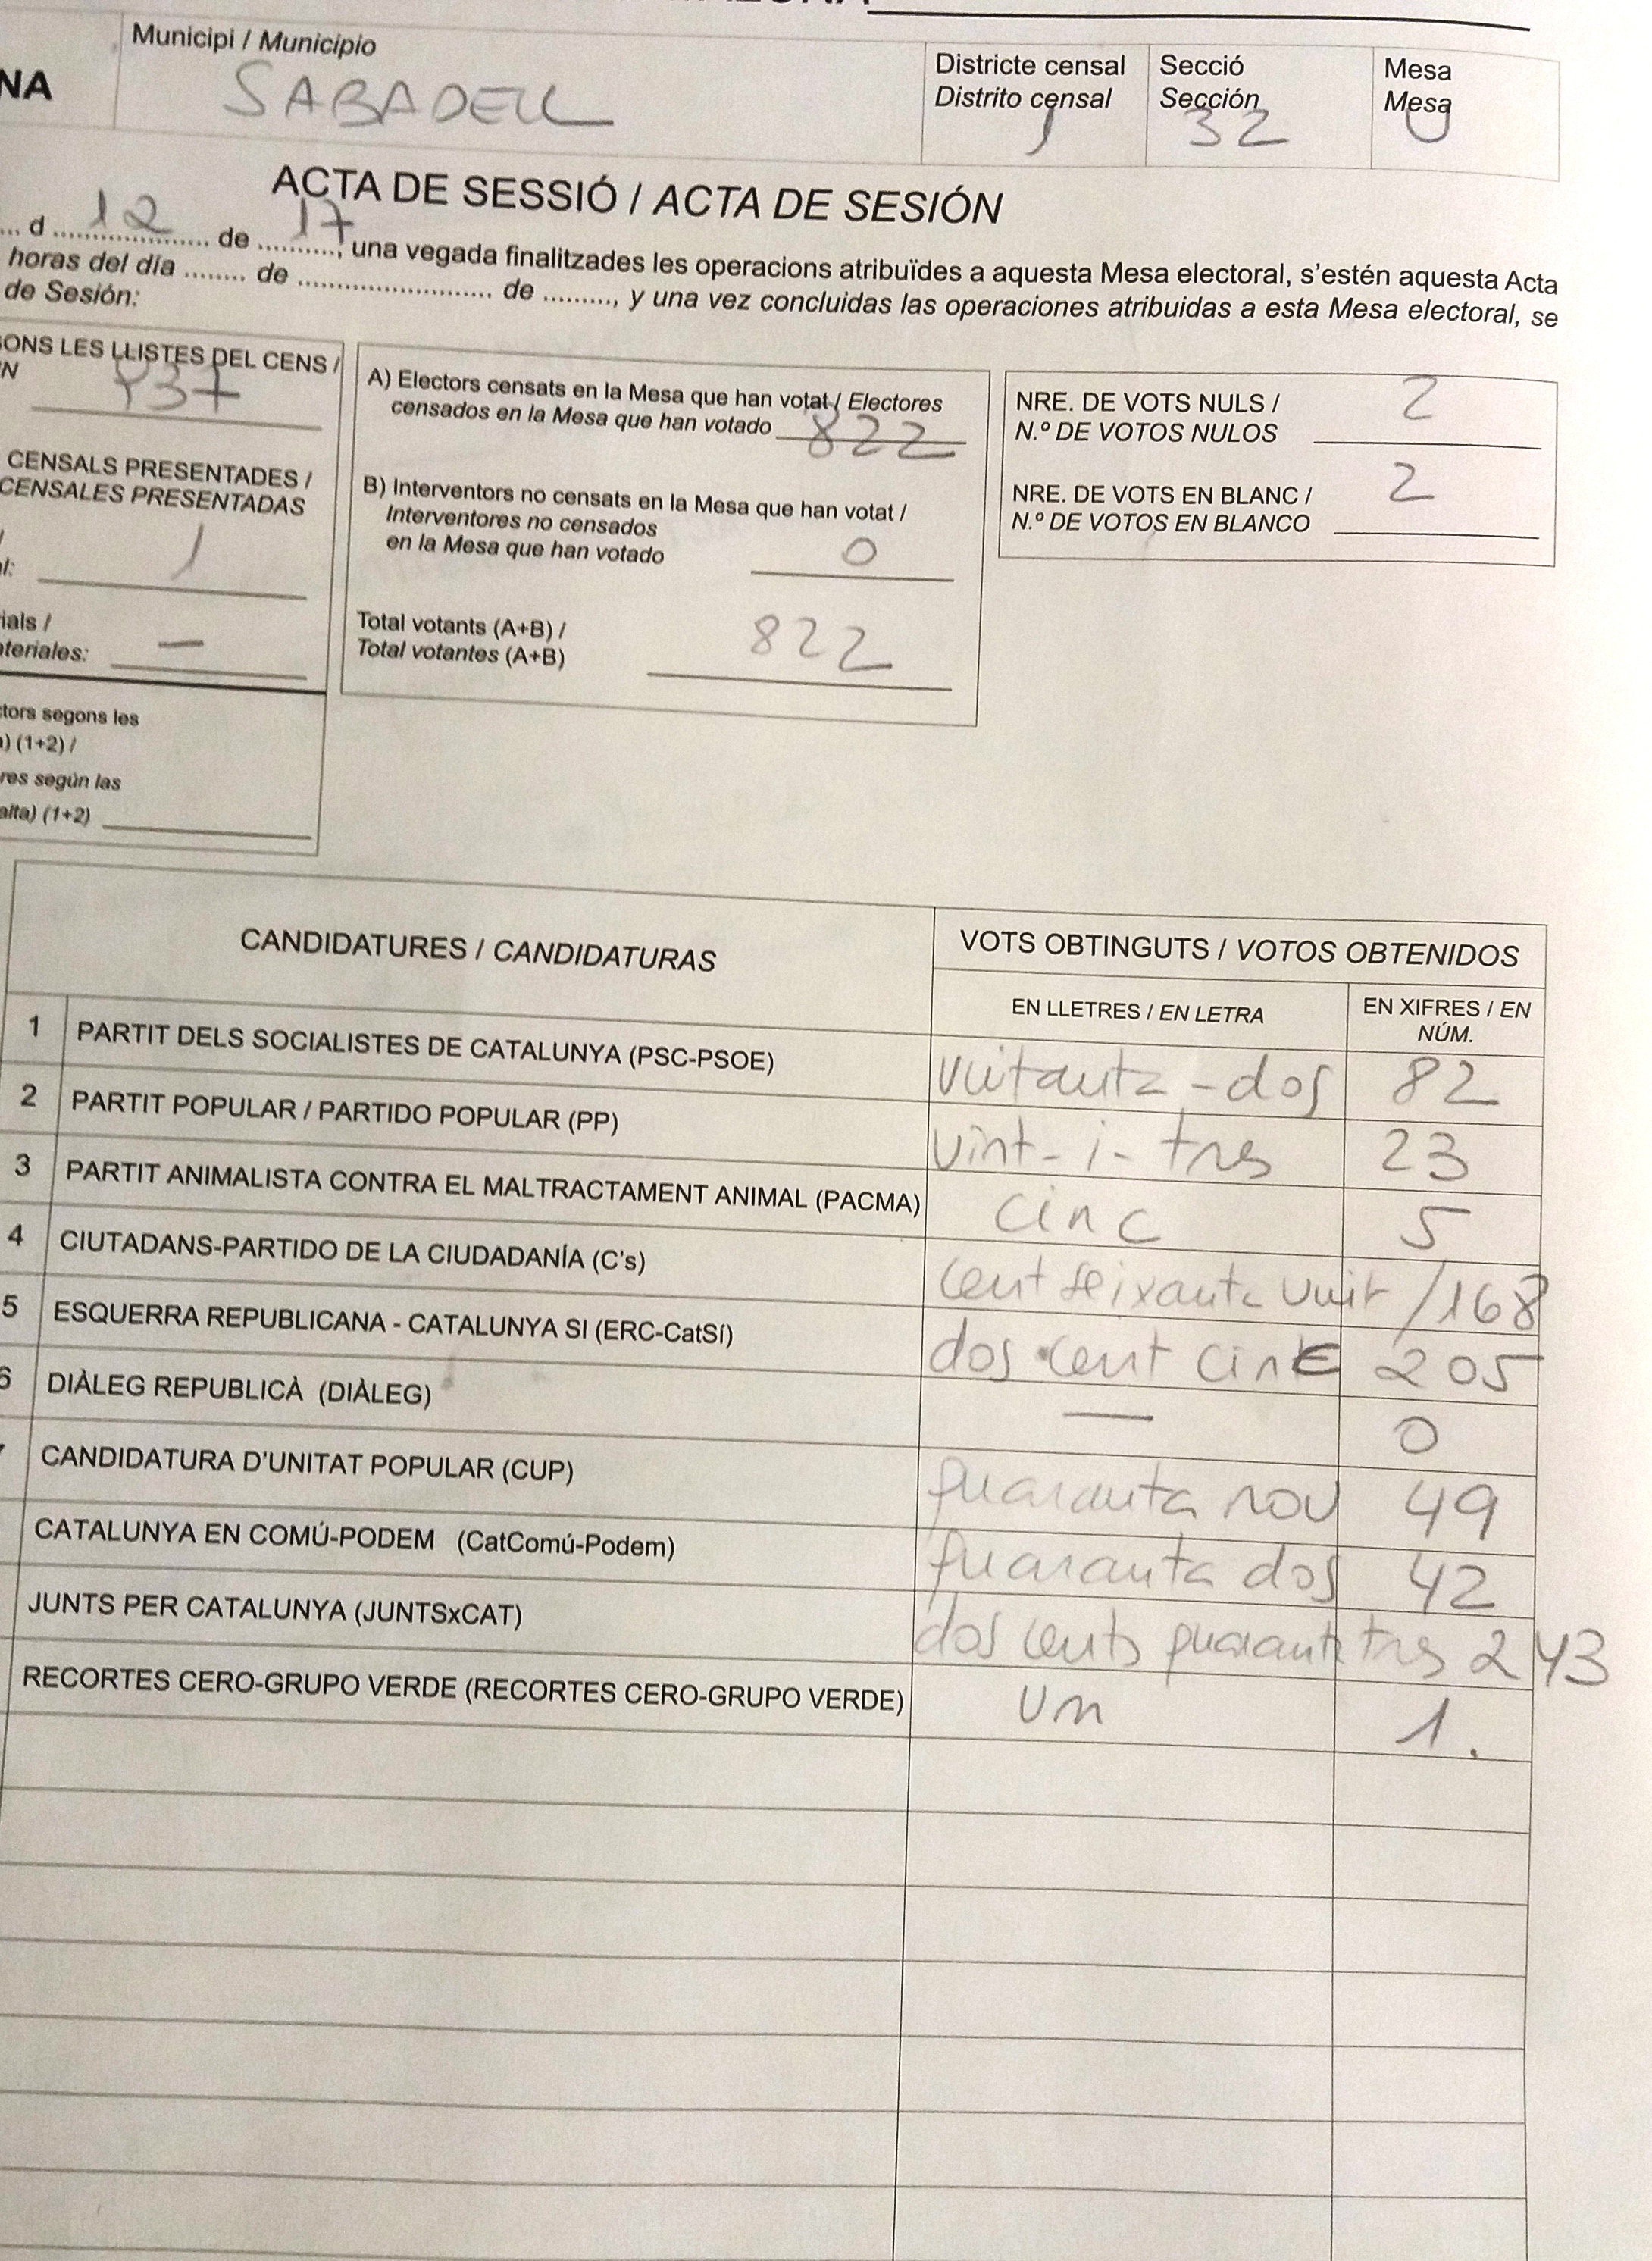 Municipi / Municipio
NA
SABADELL
Districte censal
Distrito censal
1
Secció
Sección
32
Mesa
Mesa
U
ACTA DE SESSIÓ / ACTA DE SESIÓN
... d 12 de 17, una vegada finalitzades les operacions atribuïdes a aquesta Mesa electoral, s'estén aquesta Acta
horas del día ........ de ........................ de ........., y una vez concluidas las operaciones atribuidas a esta Mesa electoral, se
de Sesión:
ONS LES LLISTES DEL CENS /
N
937
CENSALS PRESENTADES /
CENSALES PRESENTADAS
l: 1
ials /
teriales: —
tors segons les
) (1+2) /
res según las
alta) (1+2)
A) Electors censats en la Mesa que han votat / Electores
censados en la Mesa que han votado 822
B) Interventors no censats en la Mesa que han votat /
Interventores no censados
en la Mesa que han votado 0
Total votants (A+B) /
Total votantes (A+B) 822
NRE. DE VOTS NULS /
N.º DE VOTOS NULOS 2
NRE. DE VOTS EN BLANC /
N.º DE VOTOS EN BLANCO 2
CANDIDATURES / CANDIDATURAS
VOTS OBTINGUTS / VOTOS OBTENIDOS
EN LLETRES / EN LETRA
EN XIFRES / EN
NÚM.
1 PARTIT DELS SOCIALISTES DE CATALUNYA (PSC-PSOE) vuitanta-dos 82
2 PARTIT POPULAR / PARTIDO POPULAR (PP) vint-i-tres 23
3 PARTIT ANIMALISTA CONTRA EL MALTRACTAMENT ANIMAL (PACMA) cinc 5
4 CIUTADANS-PARTIDO DE LA CIUDADANÍA (C's) cent seixanta vuit / 168
5 ESQUERRA REPUBLICANA - CATALUNYA SI (ERC-CatSí) dos cent cinc 205
6 DIÀLEG REPUBLICÀ (DIÀLEG) — 0
CANDIDATURA D'UNITAT POPULAR (CUP) quaranta nou 49
CATALUNYA EN COMÚ-PODEM (CatComú-Podem) quaranta dos 42
JUNTS PER CATALUNYA (JUNTSxCAT) dos cents quaranta tres 243
RECORTES CERO-GRUPO VERDE (RECORTES CERO-GRUPO VERDE) un 1.